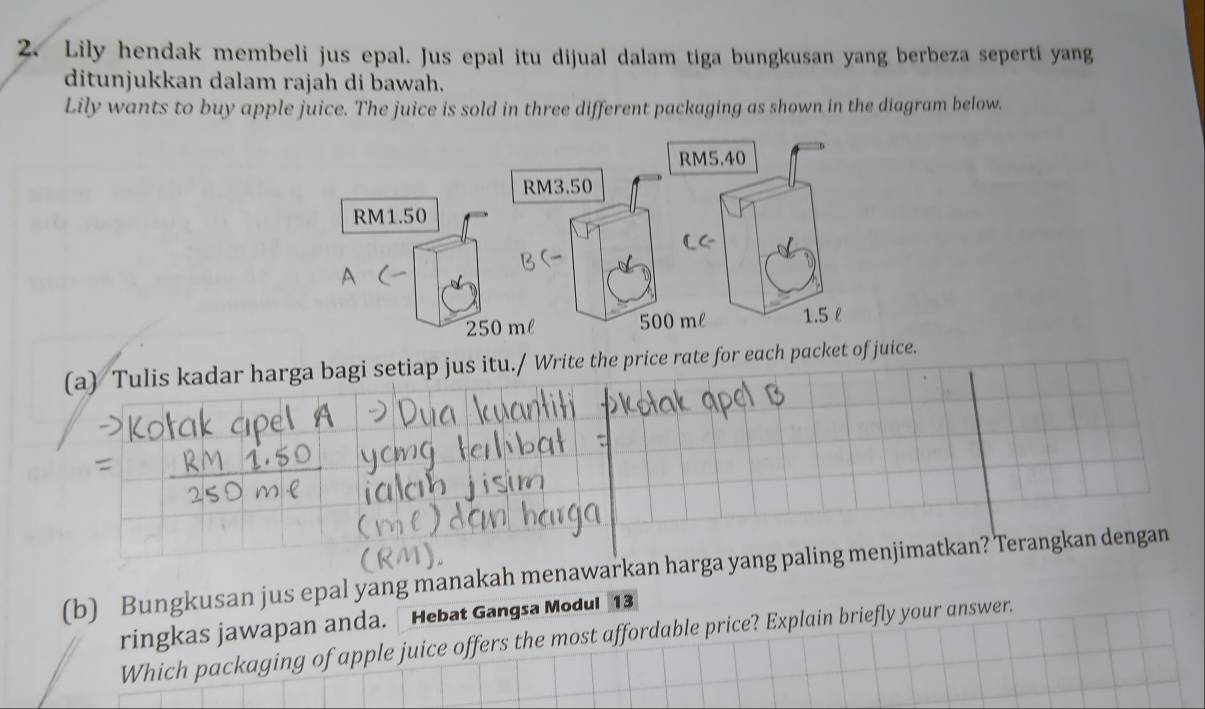 2. Lily hendak membeli jus epal. Jus epal itu dijual dalam tiga bungkusan yang berbeza seperti yang
ditunjukkan dalam rajah di bawah.
Lily wants to buy apple juice. The juice is sold in three different packaging as shown in the diagram below.
RM5.40
RM3.50
RM1.50
A <-
B <-
C <-
250 mℓ
500 mℓ
1.5 ℓ
(a) Tulis kadar harga bagi setiap jus itu./ Write the price rate for each packet of juice.
→ Kotak apel A
= RM 1.50
250 ml
→ Dua kuantiti
yang terlibat
ialah jisim
(ml) dan harga
(RM).
→ kotak apel B
=
(b) Bungkusan jus epal yang manakah menawarkan harga yang paling menjimatkan? Terangkan dengan
ringkas jawapan anda. Hebat Gangsa Modul 13
Which packaging of apple juice offers the most affordable price? Explain briefly your answer.